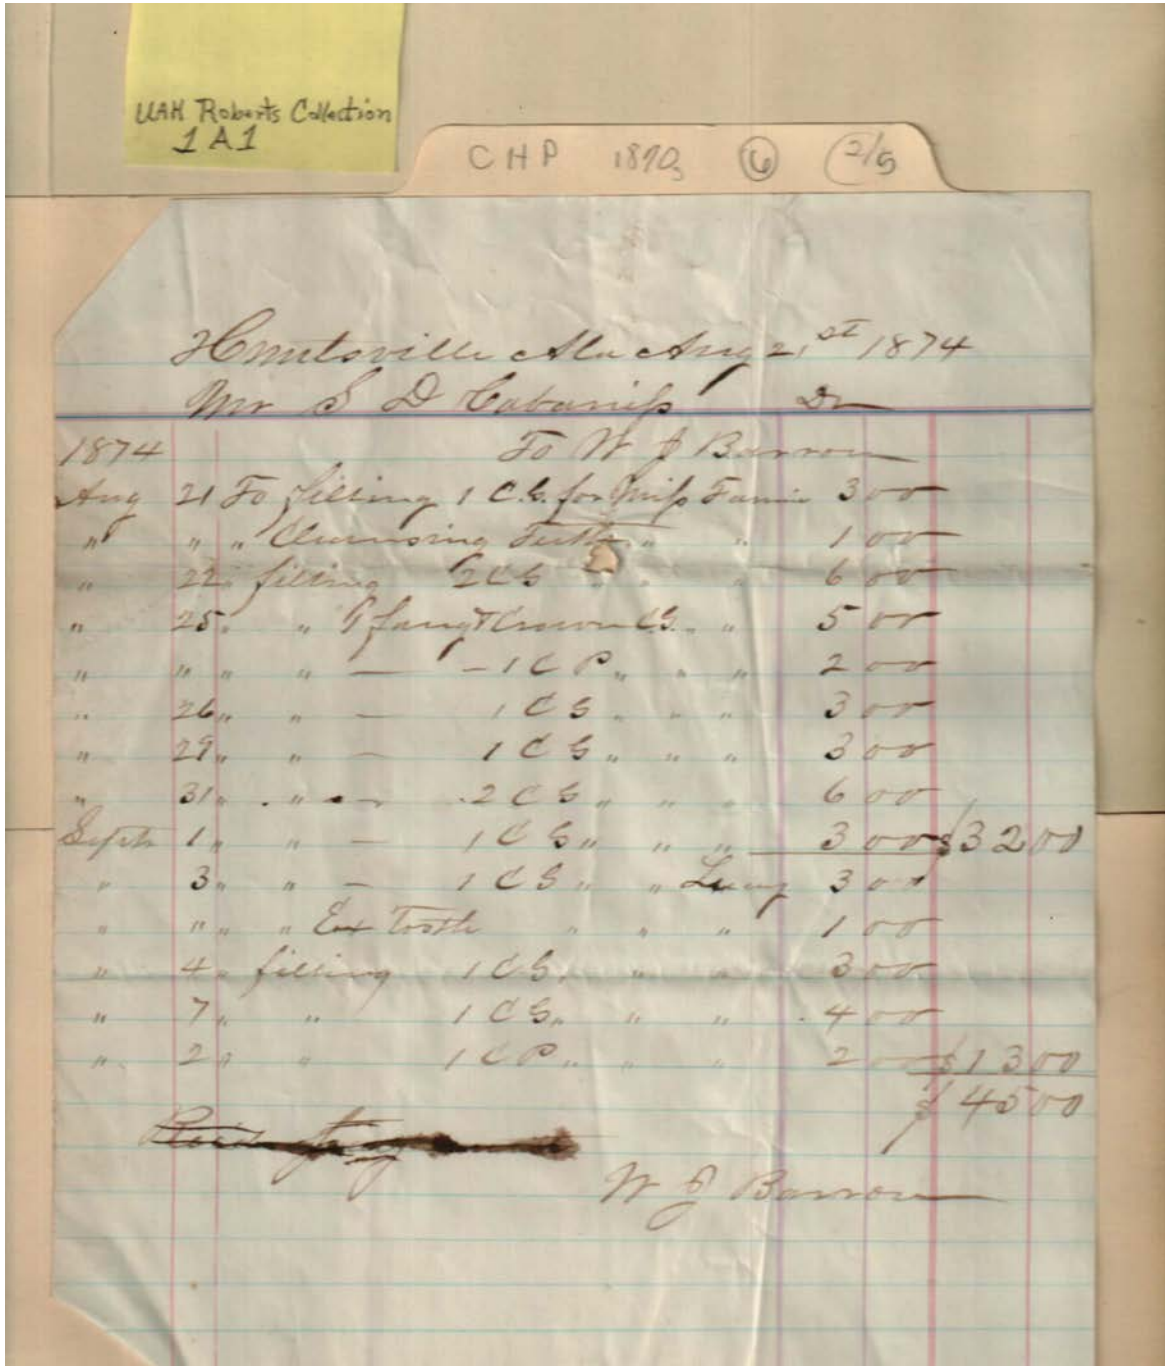 UAH Roberts Collection
1A1
CHP 1870s 6 2/5
Huntsville Ala Aug 21st 1874
Mr S D Cabaniss Dr
1874 To W J Barron
Aug 21 To filling 1 C.G. for Miss Fannie 3 00
" " " Cleansing Teeth " " 1 00
" 22 " filling 2 C G " " " 6 00
" 25 " " fang & Crown C.G. " " 5 00
" " " " — - 1 C P " " " 2 00
" 26 " " — 1 C G " " " 3 00
" 29 " " — 1 C G " " " 3 00
" 31 " " — 2 C G " " " 6 00
Septr 1 " " — 1 C G " " " 3 00 $32 00
" 3 " " — 1 C G " " Lucy 3 00
" " " " Ex Tooth " " " 1 00
" 4 " filling 1 C G. " " 3 00
" 7 " " 1 C G. " " " 4 00
" 2 " " 1 C P " " " 2 00 $13 00
$45 00
W J Barron